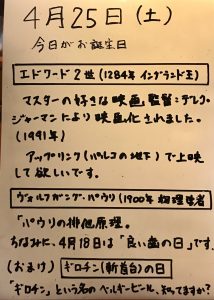 4月25日(土)
今日がお誕生日
エドワード2世(1284年 イングランド王)
マスターの好きな映画監督:デレク・
ジャーマンにより映画化されました。
(1991年)
アップリンク(パルコの地下)で上映
して欲しいです。
ヴォルフガング・パウリ(1900年 物理学者)
「パウリの排他原理。
ちなみに、4月18日は「良い歯の日」です。
(おまけ) ギロチン(斬首台)の日
「ギロチン」という名のベルギービール、知ってますか?